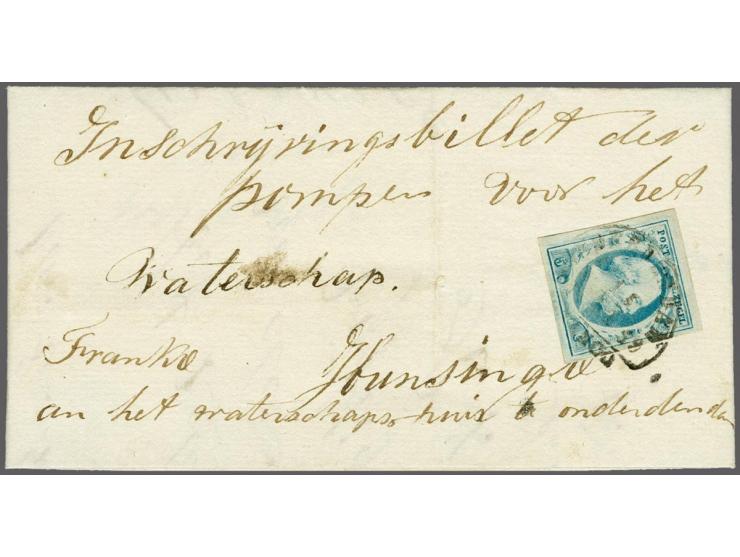 Inschrijvingsbillet der
pompen voor het
Waterschap.
Franko Hunsingo
an het waterschaps huis te onderdendam
POST ZEGEL
5 C